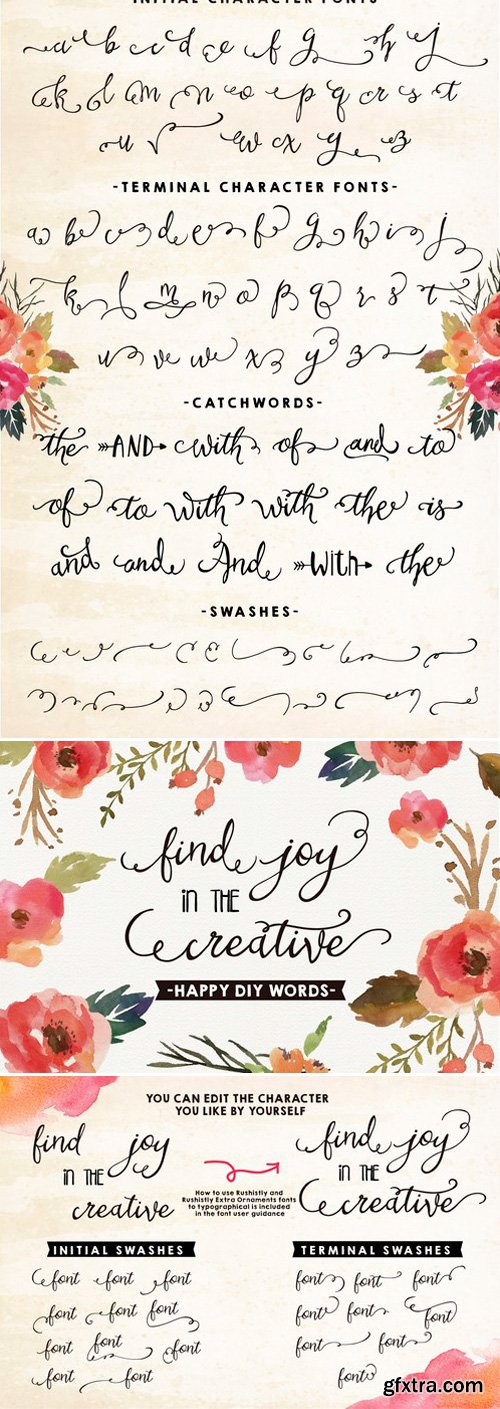 INITIAL CHARACTER FONTS
a b c d e f g h i j
k l m n o p q r s t
u v w x y z
-TERMINAL CHARACTER FONTS-
a b c d e f g h i j
k l m n o p q r s t
u v w x y z
-CATCHWORDS-
the AND with of and to
of to with with the is
and and And With the
-SWASHES-
find joy
in THE
creative
-HAPPY DIY WORDS-
YOU CAN EDIT THE CHARACTER
YOU LIKE BY YOURSELF
find joy
in THE
creative
How to use Rushistly and
Rushistly Extra Ornaments fonts
to typographical is included
in the font user guidance
find joy
in THE
creative
INITIAL SWASHES
font font font
font font font
font font font
font font
TERMINAL SWASHES
font font font
font font font
font font
font
gfxtra.com